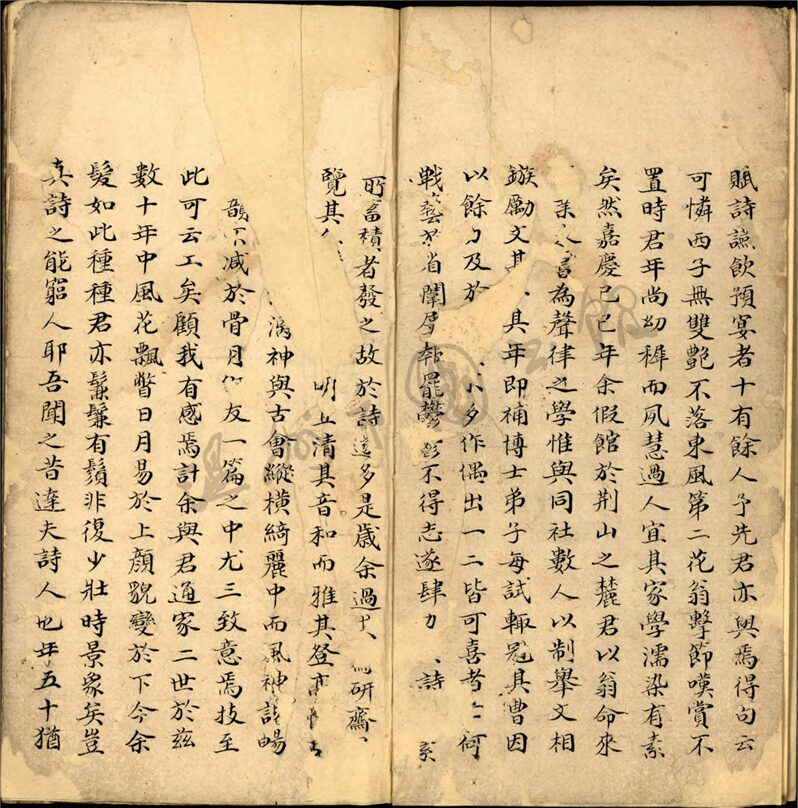 賦詩讌飲預宴者十有餘人予先君亦與焉得句云
可憐西子無雙艷不落東風第二花翁擊節嘆賞不
置時君年尚幼穉而夙慧過人宜其家學濡染有素
矣然嘉慶己巳年余假館於荆山之麓君以翁命來
為聲律之學惟與同社數人以制舉文相
鏃勵文其具年即補博士弟子每試輙冠其曹因
以餘力及於多作偶出一二皆可喜者何
戰藝省闈屢報罷鬱不得志遂肆力詩
所蓄積者發之故於詩遠多是歲余過研齋
覽其明且清其音和而雅其登高
神與古會縱橫綺麗中而風神諧暢
韻不减於骨月友一篇之中尤三致意焉技至
此可云工矣顧我有感焉計余與君通家二世於兹
數十年中風花飄瞥日月易於上顔貌變於下今余
髮如此種種君亦鬑鬑有鬚非復少壯時景象矣豈
真詩之能窮人耶吾聞之昔達夫詩人也年五十猶